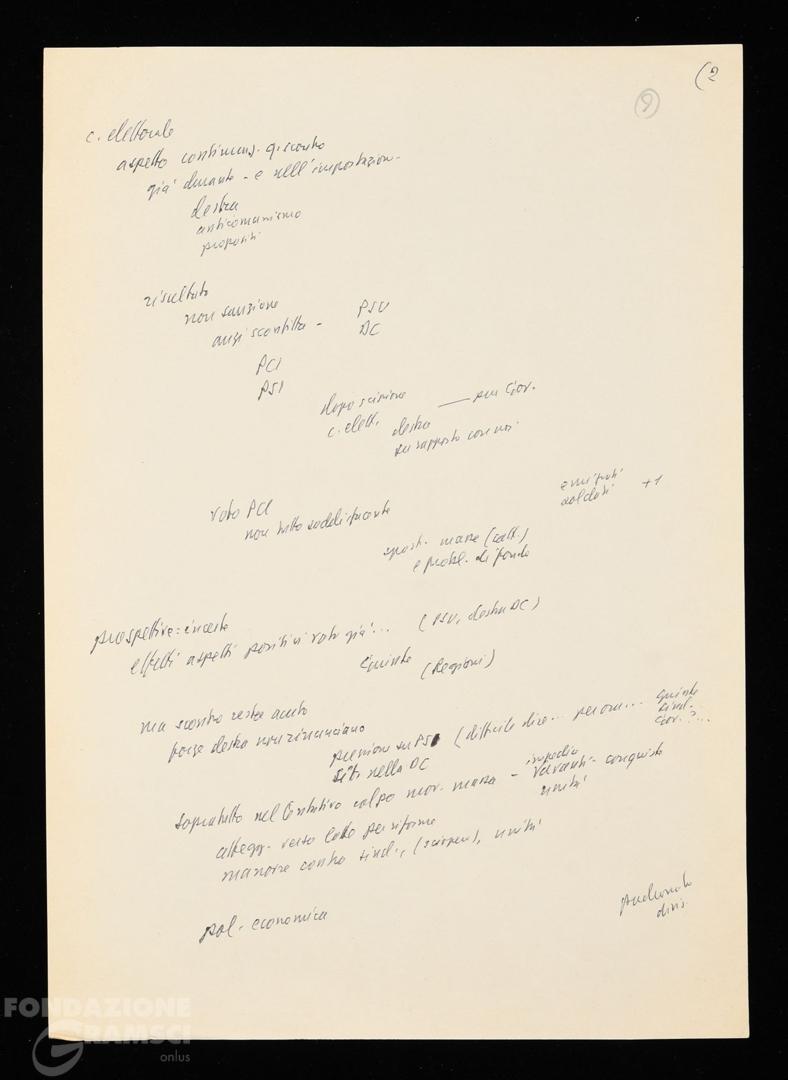 (2
9
c. elettorale
aspetto continuaz. q. scontro
già durante - e nell'impostazion.
destra
anticomunismo
propositi
risultato
non sanzione
anzi sconfitta - PSU
DC
PCI
PSI
dopo scissione
c. elett. destra per Gov.
su rapporto con noi
voto PCI
non tutto soddisfacente
emigrati
soldati +1
spost. masse (catt.)
e probl. di fondo
prospettive: incerte
effetti aspetti positivi voto già... (PSU, destra DC)
Giunte (Regioni)
ma scontro resta acuto
forze destra non rinunciano
pressione su PSI (difficile dire... per ora... giunte
sind.
Gov.?...
sit. nella DC
sopratutto nel tentativo colpo mov. massa - impedire
avanti - conquiste
unità
attegg. verso lotte per riforme
manovre contro sind., (scioperi), unità
pol. economica
padronato
divis.
FONDAZIONE
GRAMSCI
onlus